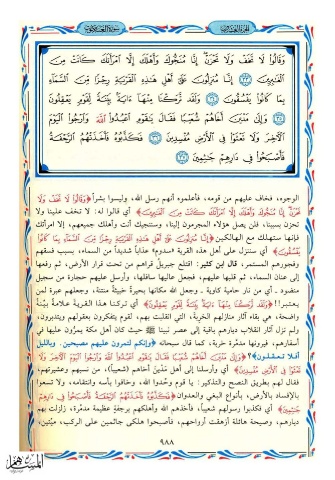 وَقَالُوا۟ لَا تَخَفْ وَلَا تَحْزَنْ إِنَّا مُنَجُّوكَ وَأَهْلَكَ إِلَّا ٱمْرَأَتَكَ كَانَتْ مِنَ
ٱلْغَٰبِرِينَ ٣٣ إِنَّا مُنزِلُونَ عَلَىٰٓ أَهْلِ هَٰذِهِ ٱلْقَرْيَةِ رِجْزًا مِّنَ ٱلسَّمَآءِ
بِمَا كَانُوا۟ يَفْسُقُونَ ٣٤ وَلَقَد تَّرَكْنَا مِنْهَآ ءَايَةًۢ بَيِّنَةً لِّقَوْمٍ يَعْقِلُونَ
٣٥ وَإِلَىٰ مَدْيَنَ أَخَاهُمْ شُعَيْبًا فَقَالَ يَٰقَوْمِ ٱعْبُدُوا۟ ٱللَّهَ وَٱرْجُوا۟ ٱلْيَوْمَ
ٱلْءَاخِرَ وَلَا تَعْثَوْا۟ فِى ٱلْأَرْضِ مُفْسِدِينَ ٣٦ فَكَذَّبُوهُ فَأَخَذَتْهُمُ ٱلرَّجْفَةُ
فَأَصْبَحُوا۟ فِى دَارِهِمْ جَٰثِمِينَ ٣٧
الوجوه، فخاف عليهم من قومه، فأعلموه أنهم رسل الله، وليسوا بشراً ﴿وَقَالُوا لَا تَخَفْ وَلَا
تَحْزَنْ إِنَّا مُنَجُّوكَ وَأَهْلَكَ إِلَّا امْرَأَتَكَ كَانَتْ مِنَ الْغَابِرِينَ﴾ أي قالوا له: لا تخف علينا ولا
تحزن بسببنا، فلن يصل هؤلاء المجرمون إلينا، وسننجيك أنت وأهلك جميعهم، إلا امرأتك
فإنها ستهلك مع الهالكين ﴿إِنَّا مُنْزِلُونَ عَلَى أَهْلِ هَذِهِ الْقَرْيَةِ رِجْزًا مِنَ السَّمَاءِ بِمَا كَانُوا
يَفْسُقُونَ﴾ أي سننزل على أهل هذه القرية "سدوم" عذاباً شديداً من السماء، بسبب فسقهم
وفجورهم المستمر، قال ابن كثير: اقتلع جبريل قراهم من تحت قرار الأرض، ثم رفعها
إلى عنان السماء، ثم قلبها عليهم، فجعل عاليها سافلها، وأرسل عليهم حجارة من سجيل
منضود ـ أي من نار حامية كاوية ـ وجعل الله مكانها بحيرة خبيثة منتنة، وجعلهم عبرة لمن
يعتبر!! ﴿وَلَقَدْ تَرَكْنَا مِنْهَا آيَةً بَيِّنَةً لِقَوْمٍ يَعْقِلُونَ﴾ أي تركنا هذه القرية علامة بيّنة
واضحة، هي بقاء آثار منازلهم الخربة، التي انقلبت بهم، لقوم يتفكرون بعقولهم ويتدبرون،
ولم تزل آثار انقلاب ديارهم باقية إلى عصر نبينا ﷺ حيث كان أهل مكة يمرّون عليها في
أسفارهم، فيرونها مدمّرة خربة، كما قال سبحانه ﴿وإنكم لتمرون عليهم مصبحين . وبالليل
أفلا تعقلون﴾؟ ﴿وَإِلَى مَدْيَنَ أَخَاهُمْ شُعَيْبًا فَقَالَ يَا قَوْمِ اعْبُدُوا اللَّهَ وَارْجُوا الْيَوْمَ الْآخِرَ وَلَا
تَعْثَوْا فِي الْأَرْضِ مُفْسِدِينَ﴾ أي وأرسلنا إلى أهل مَدْين أخاهم (شعيباً)، من نسبهم وعشيرتهم،
فقال لهم بطريق النصح والتذكير: يا قوم وحّدوا الله، وخافوا بأسه وانتقامه، ولا تسعوا
بالإفساد بالأرض، بأنواع البغي والعدوان ﴿فَكَذَّبُوهُ فَأَخَذَتْهُمُ الرَّجْفَةُ فَأَصْبَحُوا فِي دَارِهِمْ
جَاثِمِينَ﴾ أي فكذبوا رسولهم شعيباً، فأخذهم الله وأهلكهم برجفةٍ عظيمة مدمّرة، زلزلت بهم
ديارهم، وصيحة هائلة أزهقت أرواحهم، فأصبحوا هلكى جاثمين على الركب، ميّتين،
٩٨٨